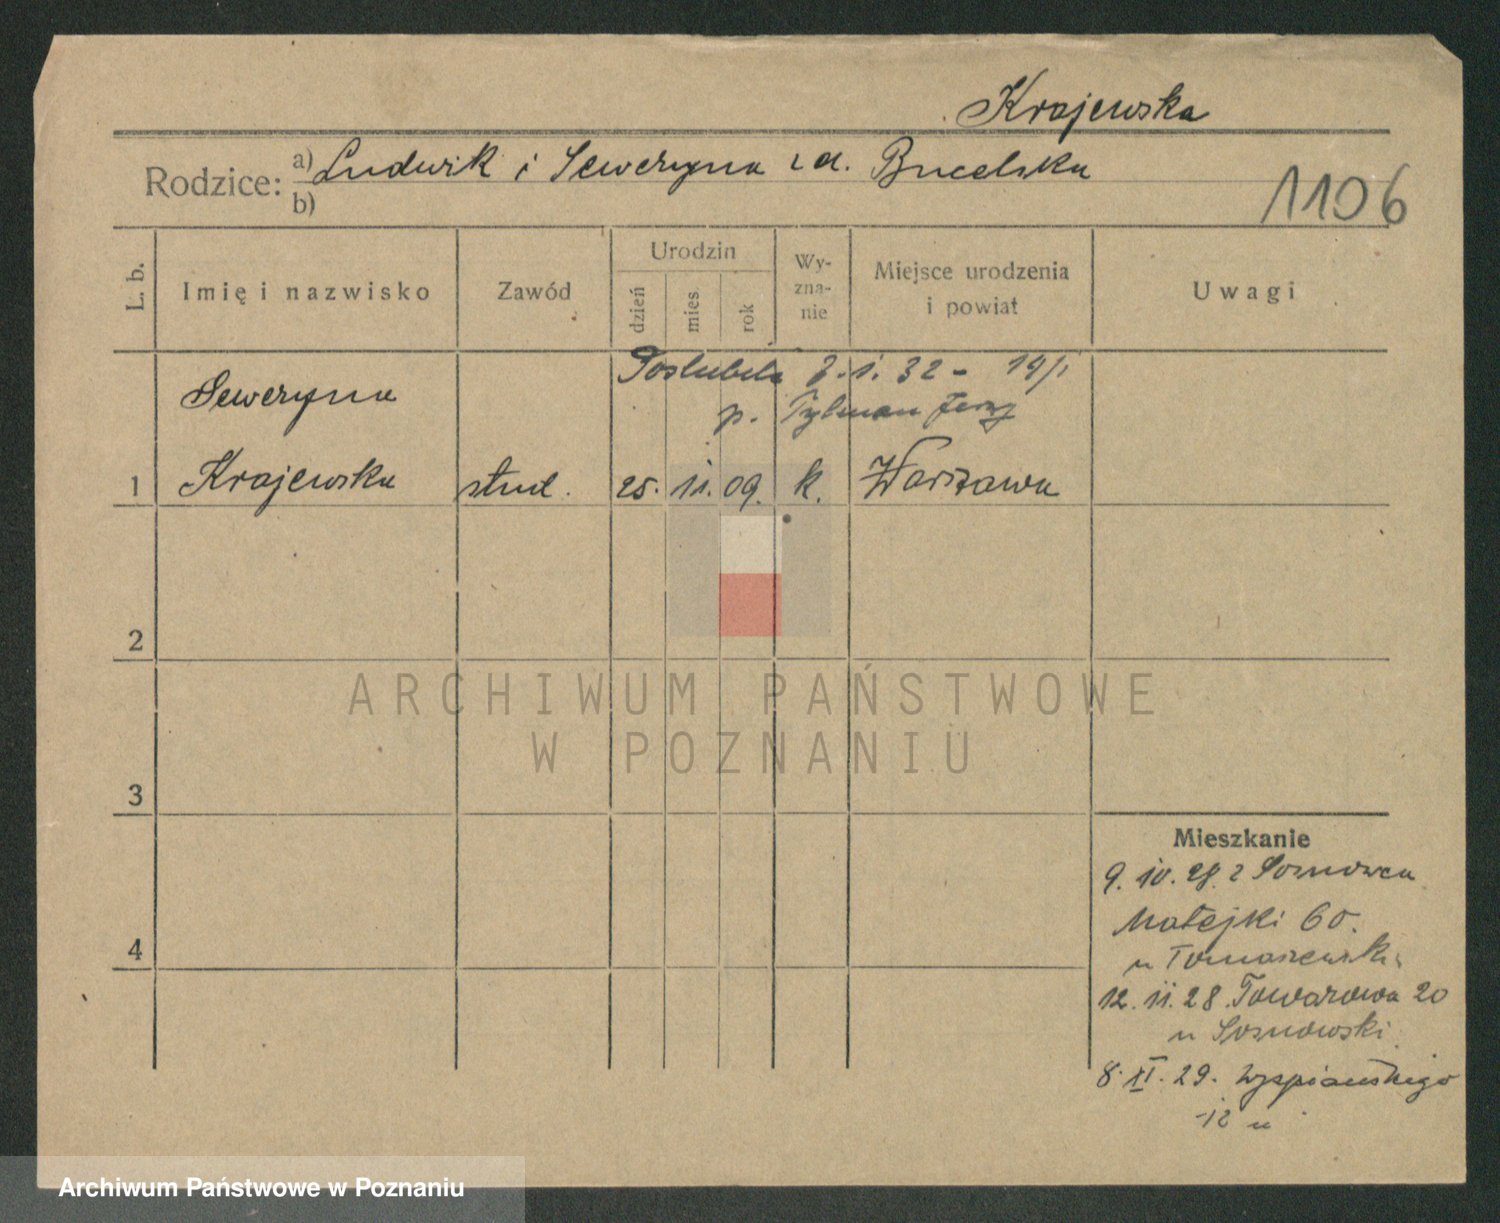 Krajewska
Rodzice: a) Ludwik i Seweryna z d. Bucelska
b)
1106
L. b.
Imię i nazwisko
Zawód
Urodzin
dzień
mies.
rok
Wy-
zna-
nie
Miejsce urodzenia
i powiat
Uwagi
Poślubiła 7.1.32 - 19/1
p. Tylman Jerzy
Seweryna
1 Krajewska stud. 25. 11. 09. k. Warszawa
2
3
4
Mieszkanie
9. 10. 28. z Sosnowca
Matejki 60.
u Tomaszewski
12. 11. 28 Towarowa 20
u Sosnowski
8. XI. 29. Wyspiańskiego
12 u
ARCHIWUM PAŃSTWOWE
W POZNANIU
Archiwum Państwowe w Poznaniu